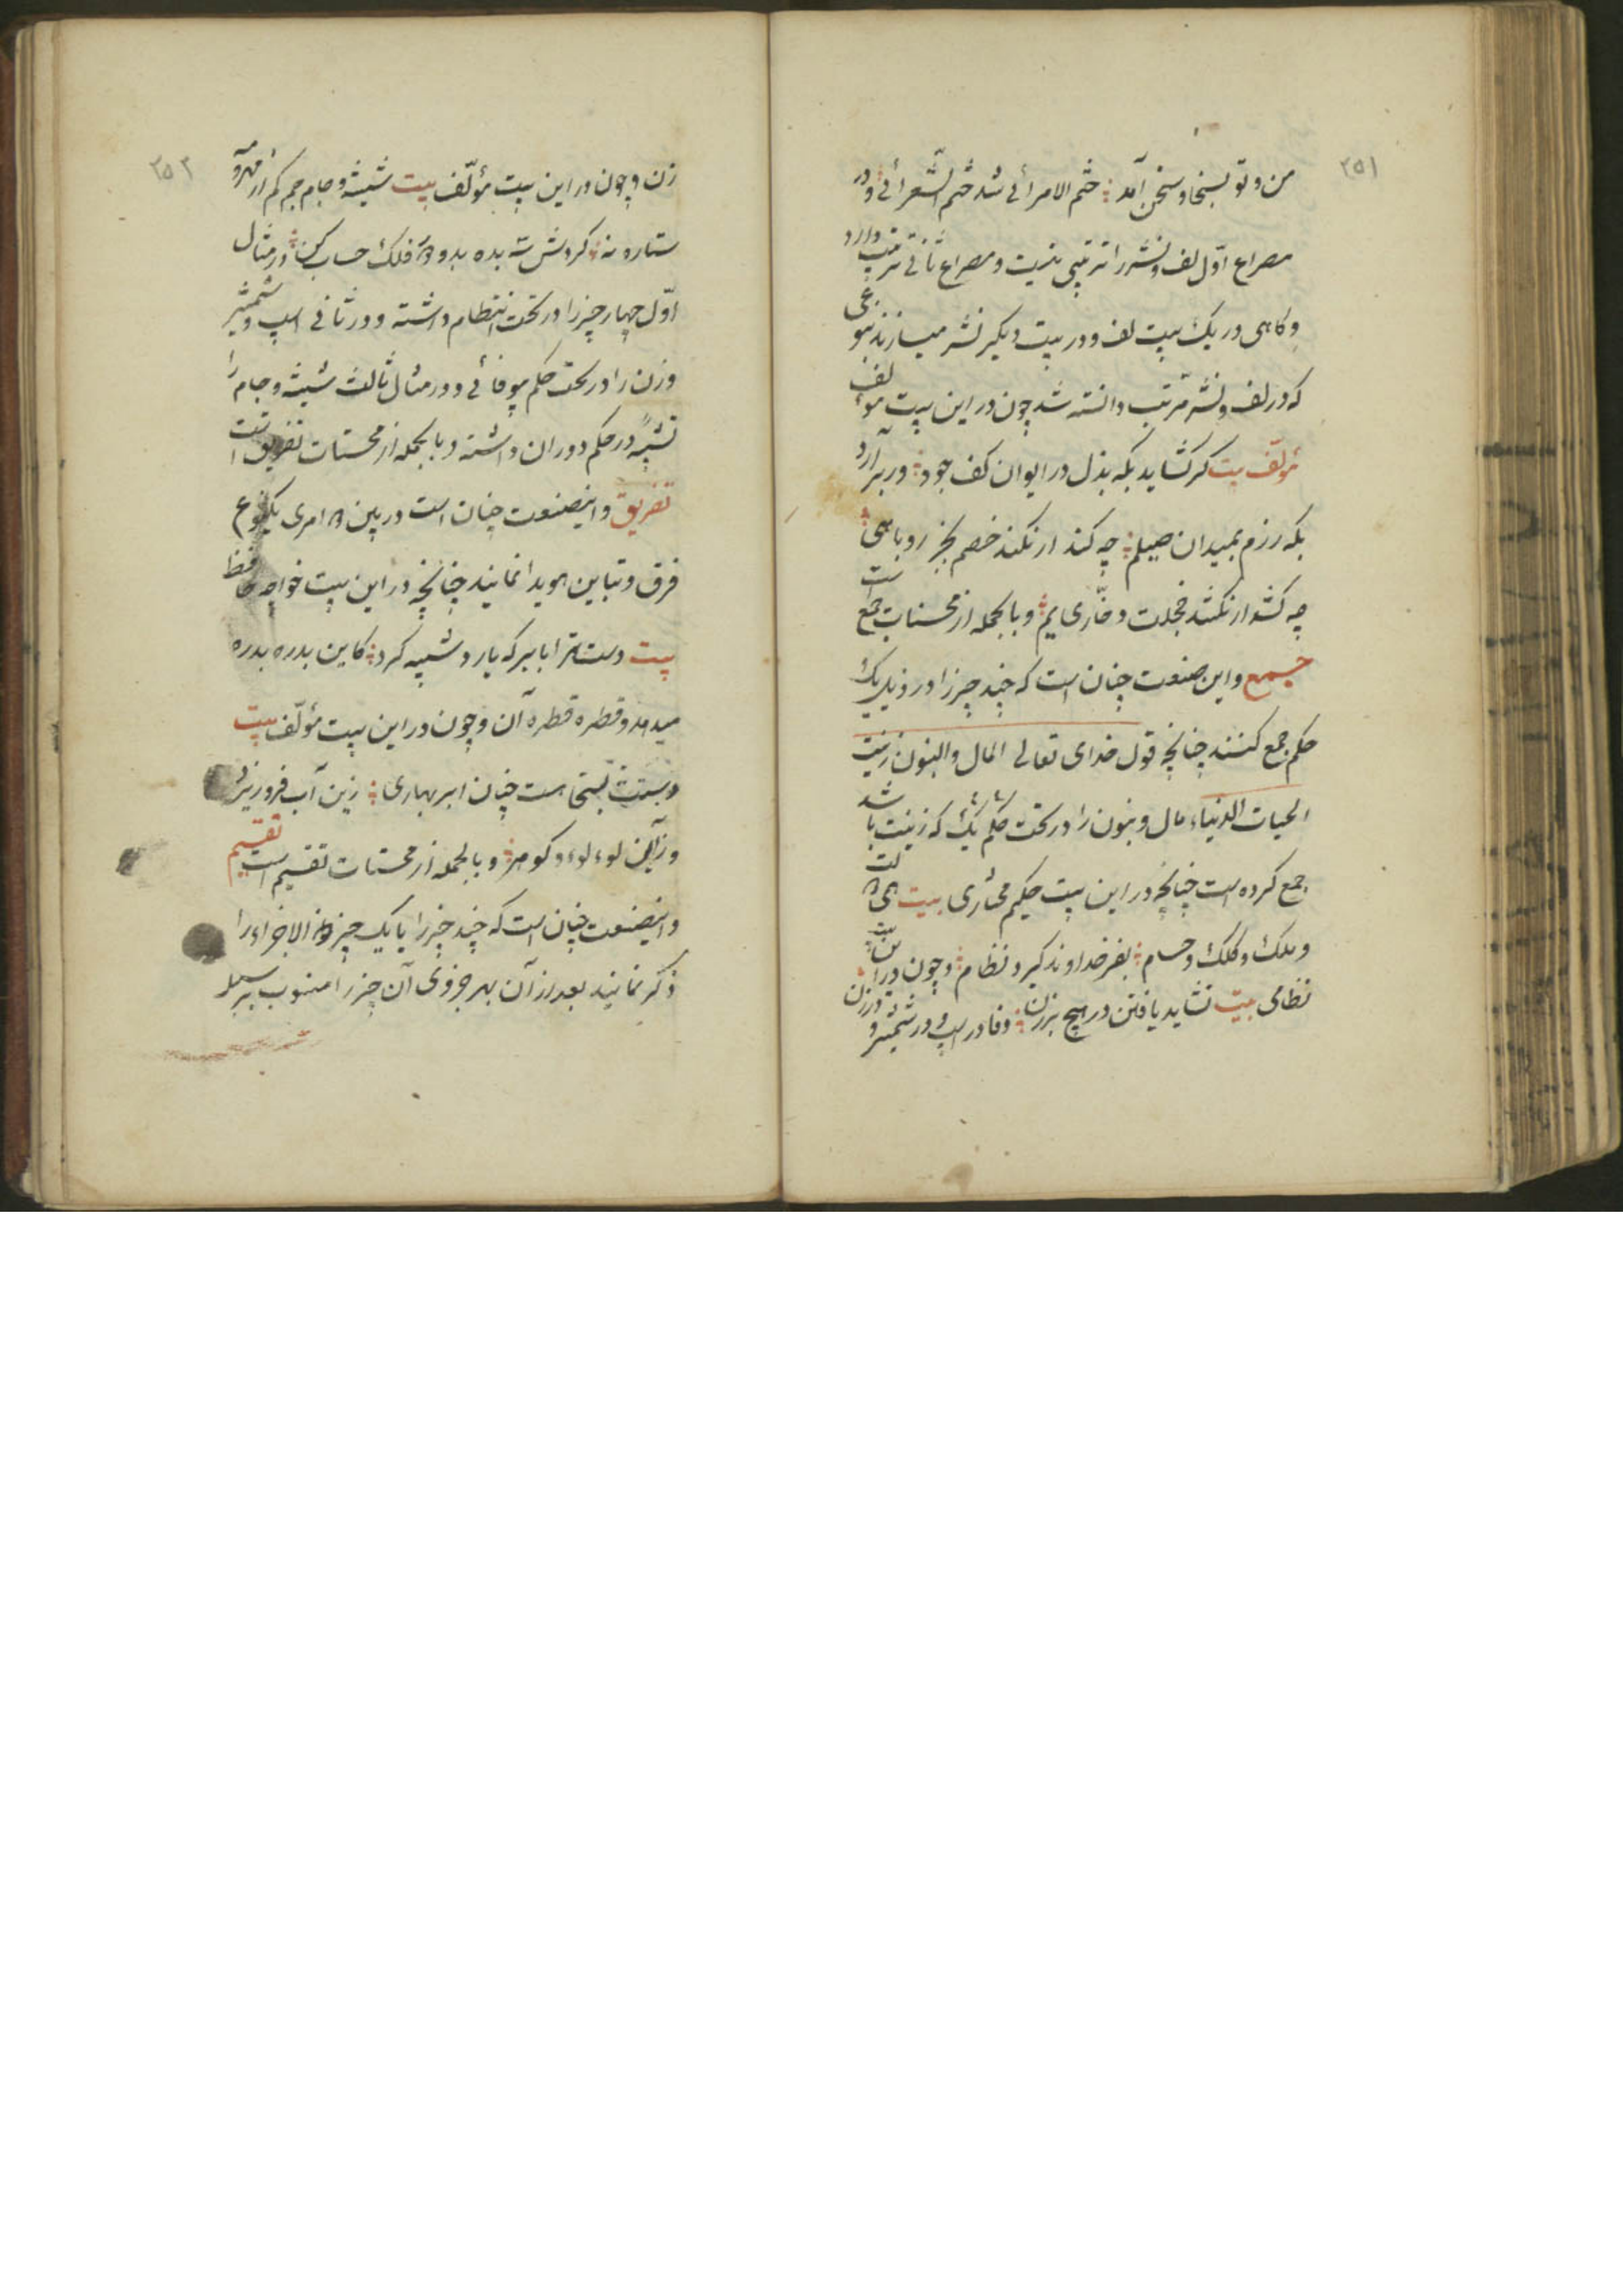 ٢٥١
من و تو بسخا و سخن آمد ؞ ختم الامرائی شد ختم الشعرائی ؞ و در
مصراع اوّل لف و نشر را ترتیبی نیست و مصراع ثانی ترتیب دارد
و کاهی در یک بیت لف و در بیت دیکر نشر میسازند بنوعی
که در لف و نشر مرّتب دانسته شد چون در این بیت مولف
مؤلّف بیت کر کشاید بکه بذل در ایوان کف جود ؞ ور برآرد
بکه رزم بمیدان ؞ چه کند ار نکند خصم بجز روباهی ؞
چه کشد ار نکشد خجلت و یم ؞ و بالجمله از محسنات جمع است
جمع و این صنعت چنان است که چند چیز را در ذیل یک
حکم جمع کنند چنانچه قول خدای تعالی المال والبنون زینت
الحیات الدنیاء مال و بنون را در تحت حکم یک که زینت باشد
جمع کرده است چنانچه در این بیت حکیم مختاری بیت
و ملک و کلک و حسام ؞ بفر خداوند کیرد نظام ؞ و چون در این بیت
نظامی بیت نشاید یافتن در هیچ برزن ؞ وفا در اسپ و در شمشیر و در زن ؞
٢٥٢
زن و چون در این بیت مؤلّف بیت شیشه و جام جم کم از مهر و
ستاره نه ؞ کردش شه بده بدو فلک حساب کن ؞ در مثال
اوّل چهار چیز را در تحت انتظام داشته و در ثانی اسپ و شمشیر
و زن را در تحت حکم بیوفائی و در مثال ثالث شیشه و جام را
در حکم دوران داشته و بالجمله از محسنات تفریق است
تفریق و اینصنعت چنان است در بین دو امری یکنوع
فرق و تباین هویدا نمایند چنانچه در این بیت خواجه حافظ
بیت دست ترا بابر که یارد شبیه کرد ؞ کاین بدره بدره
میدهد و قطره قطره آن و چون در این بیت مؤلّف بیت
دستت بسخا هست چنان ابر بهاری ؞ زین آب فرو ریزد
وز آن لوء لوء و کوهر ؞ و بالجمله از محسنات تقسیم است تقسیم
و اینصنعت چنان است که چند چیز را یا یک چیز ذو الاجزاء را
ذکر نمایند بعد از آن بهر جزوی آن چیز را منسوب بر سبیل